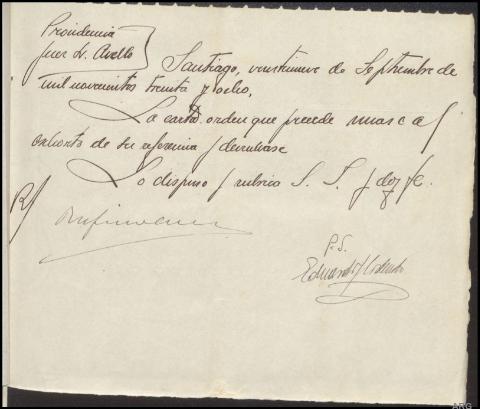 Providencia
Juez Sr. Avello
Santiago, veintinueve de Septiembre de
mil novecientos treinta y ocho,
La carta orden que precede unase al
exhorto de su referencia y devuelvase
Lo dispuso y rubrica S. S. y doy fe.
R/
P.S.
Eduardo
ARG